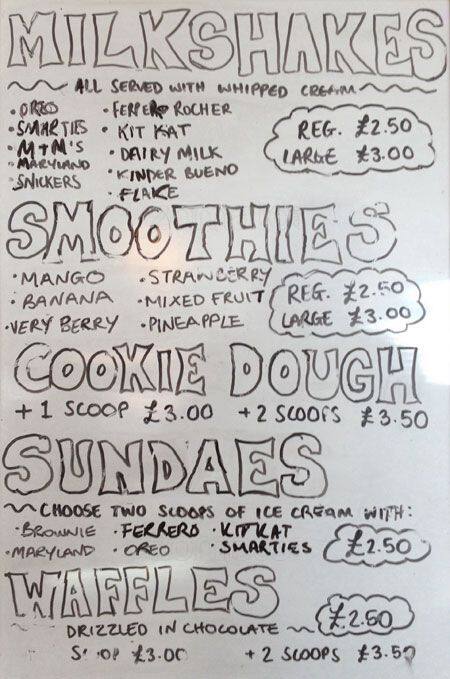 MILKSHAKES
ALL SERVED WITH WHIPPED CREAM
• OREO • FERRERO ROCHER
• SMARTIES • KIT KAT REG. £2.50
• M+M'S • DAIRY MILK LARGE £3.00
• MARYLAND • KINDER BUENO
• SNICKERS • FLAKE
SMOOTHIES
• MANGO • STRAWBERRY
• BANANA • MIXED FRUIT REG. £2.50
• VERY BERRY • PINEAPPLE LARGE £3.00
COOKIE DOUGH
+ 1 SCOOP £3.00 + 2 SCOOPS £3.50
SUNDAES
CHOOSE TWO SCOOPS OF ICE CREAM WITH:
• BROWNIE • FERRERO • KITKAT
• MARYLAND • OREO • SMARTIES £2.50
WAFFLES
£2.50
DRIZZLED IN CHOCOLATE
£3.00 + 2 SCOOPS £3.50